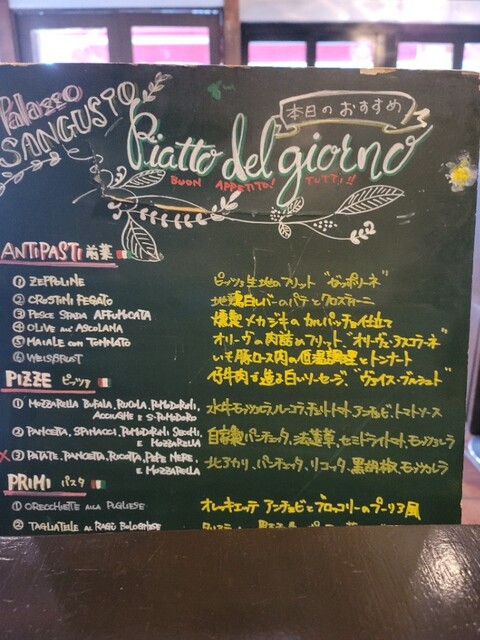 Palazzo
SANGUSTO
本日のおすすめ
Piatto del giorno
BUON APPETITO! TUTTI!!
ANTIPASTI 前菜
① ZEPPOLINE ピッツァ生地のフリット "ゼッポリーネ"
② CROSTINI FEGATO 地鶏白レバーのパテとクロスティーニ
③ PESCE SPADA AFFUMICATA 燻製メカジキのカルパッチョ仕立て
④ OLIVE ALL' ASCOLANA オリーヴの肉詰めフリット、"オリーヴェ・アスコラーネ"
⑤ MAIALE CON TONNATO いも豚ロース肉の低温調理とトンナート
⑥ 仔牛肉が造る白いソーセージ、"ヴァイス・ブルスト"
PIZZE ピッツァ
① MOZZARELLA BUFALA, RUCOLA, POMODORINI, 水牛モッツァレラ、ルーコラ、チェリートマト、アンチョビ、トマトソース
ACCIUGHE E S.POMODORO
② PANCETTA, SPINACCI, POMODORINI SECCHI, 自家製パンチェッタ、法蓮草、セミドライトマト、モッツァレラ
E MOZZARELLA
× ③ PATATE, PANCETTA, RICOTTA, PEPE NERE, 北アカリ、パンチェッタ、リコッタ、黒胡椒、モッツァレラ
E MOZZARELLA
PRIMI パスタ
① ORECCHIETTE ALLA PUGLIESE オレッキエッテ アンチョビとブロッコリーのプーリア風
② TAGLIATELLE AL RAGÙ BOLOGNESE